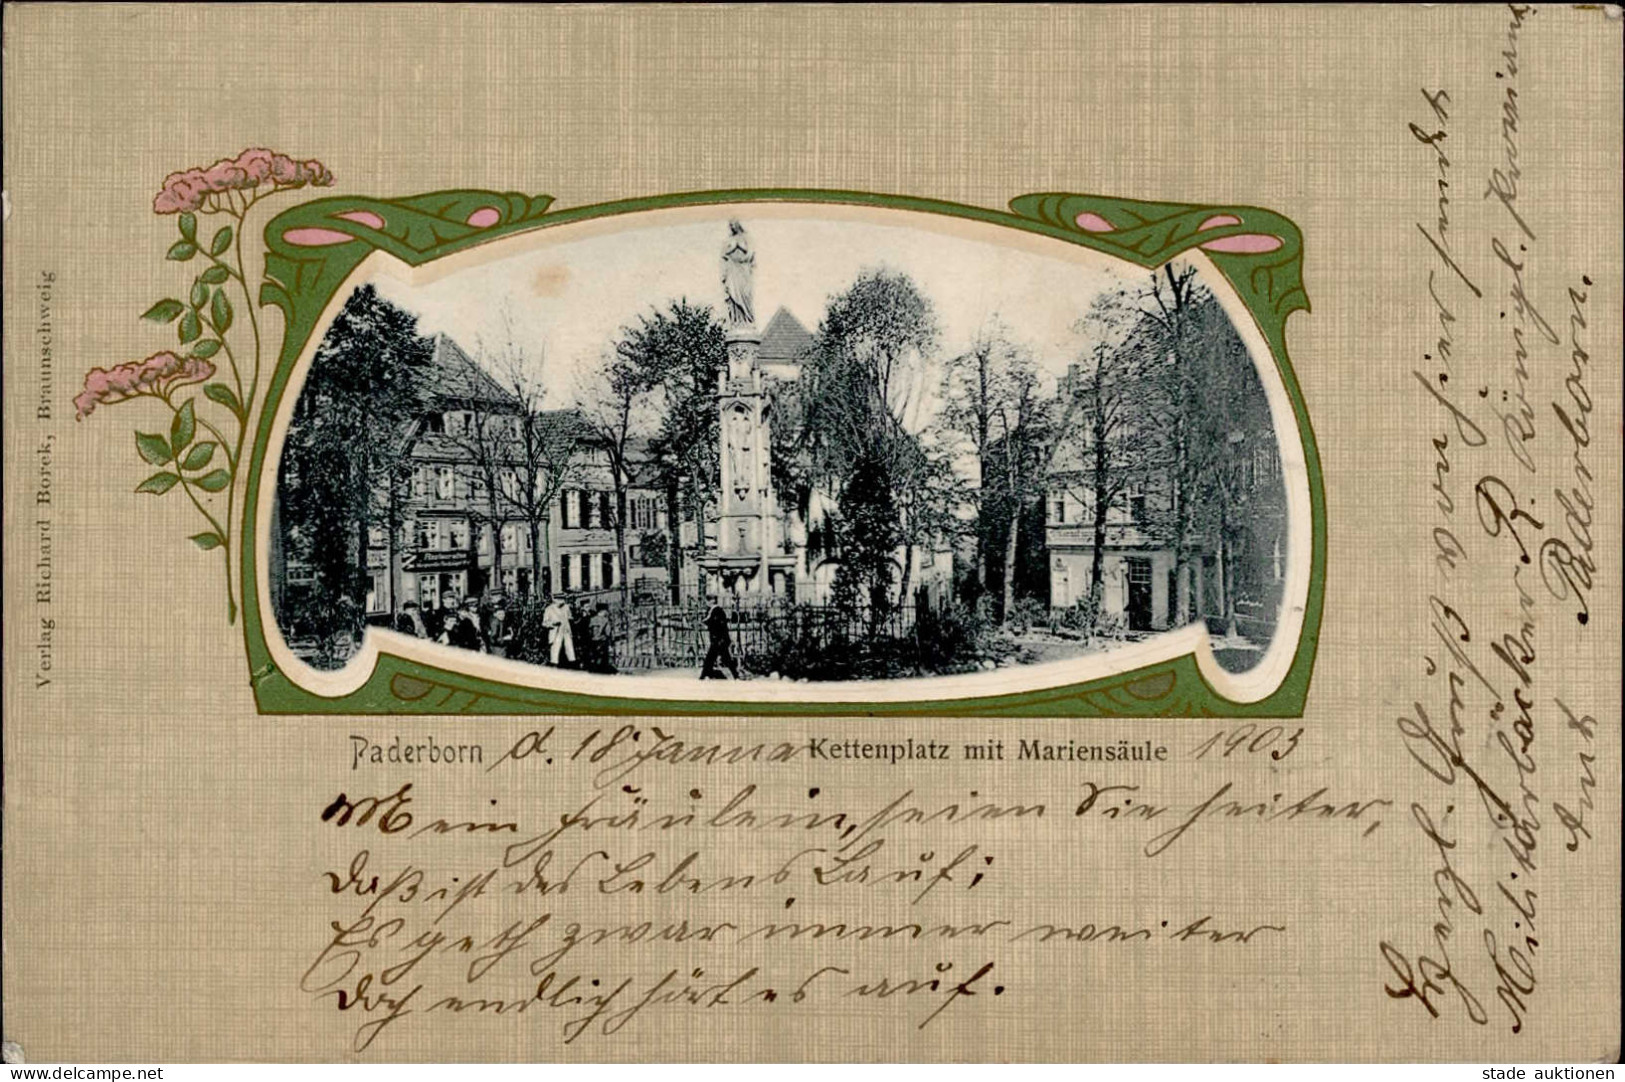 Verlag Richard Borek, Braunschweig
Paderborn d. 18. Januar Kettenplatz mit Mariensäule 1903
Mein Fräulein, seien Sie heiter,
Daß ist des Lebens Lauf;
Es geth zwar immer weiter
Doch endlich hört es auf.
Militärbäcker R. Königl. Proviant
Amt Paderborn.
delcampe.net
stade auktionen